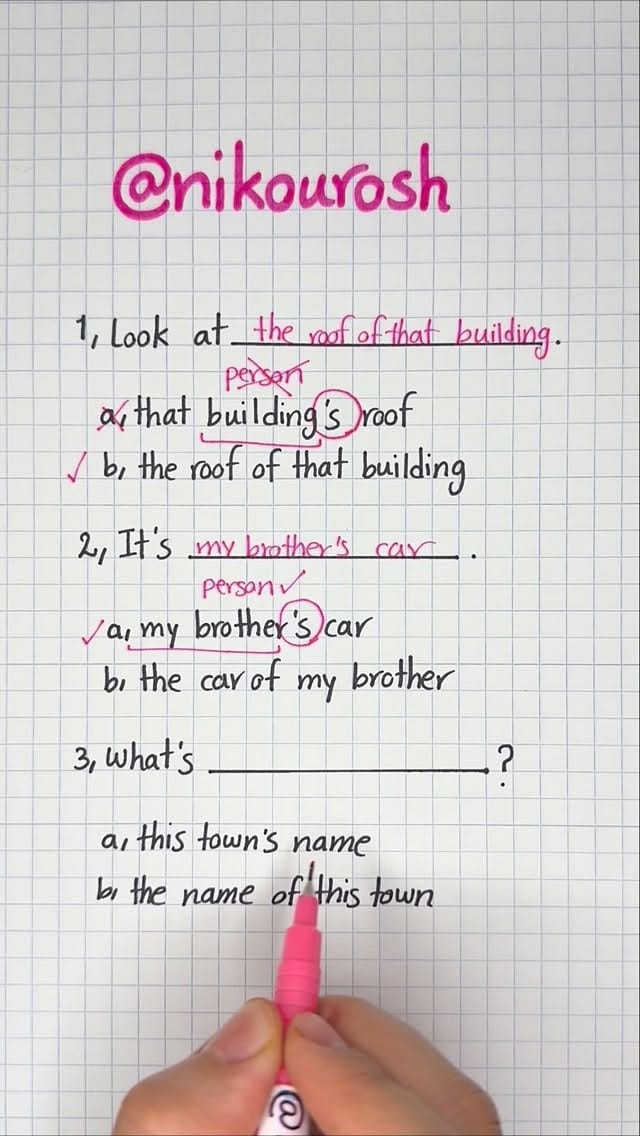 @nikourosh
1, Look at the roof of that building.
person
a, that building's roof
✓ b, the roof of that building
2, It's my brother's car.
person✓
✓a, my brother's car
b, the car of my brother
3, What's ____________?
a, this town's name
b, the name of this town